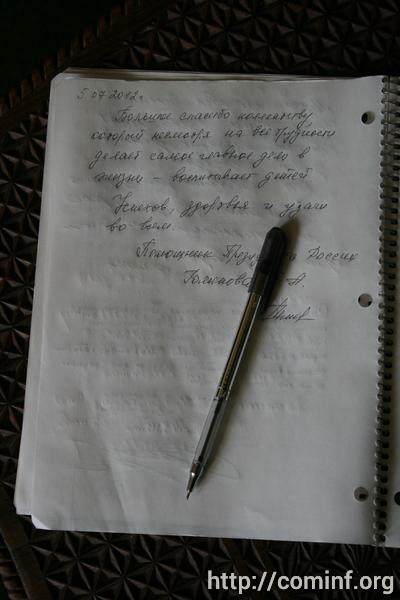 5.07.2012г
Большое спасибо коллективу
который несмотря на все трудности
делает самое главное дело в
жизни – воспитывает детей
Успехов, здоровья и удачи
во всем.
Помощник России
А.
http://cominf.org